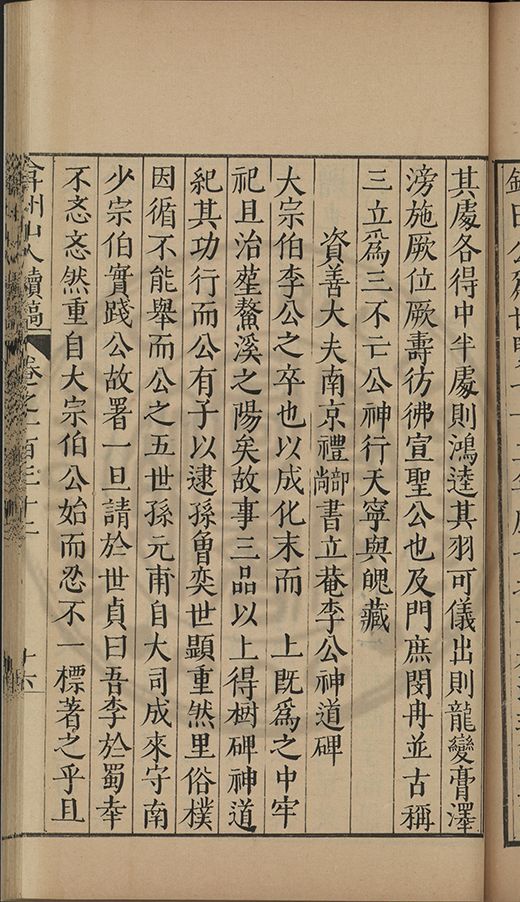 其處各得中半處則鴻逵其羽可儀出則龍變膏澤
滂施厥位厥壽彷彿宣聖公也及門庶閔冉並古稱
三立爲三不亡公神行天寧與魄藏
資善大夫南京禮部尚書立菴李公神道碑
大宗伯李公之卒也以成化末而 上既爲之中牢
祀且治塋鰲溪之陽矣故事三品以上得樹碑神道
紀其功行而公有子以逮孫曾奕世顯重然里俗樸
因循不能舉而公之五世孫元甫自大司成來守南
少宗伯實踐公故署一旦請於世貞曰吾李於蜀幸
不忝忝然重自大宗伯公始而忍不一標著之乎且
弇州山人續稿 卷之一百三十二 十六